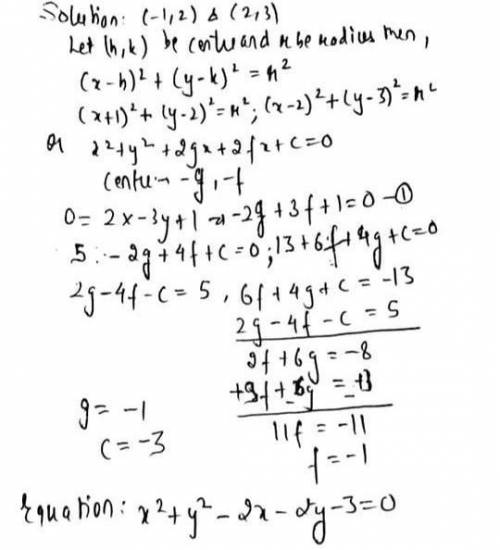 Solution: (-1,2) & (2,3)
Let (h,k) be centre and r be radius then,
(x-h)² + (y-k)² = r²
(x+1)² + (y-2)² = r²; (x-2)² + (y-3)² = r²
or x² + y² + 2gx + 2fx + c = 0
Centre → -g, -f
0 = 2x - 3y + 1 ⇒ -2g + 3f + 1 = 0 - ①
5 : - 2g + 4f + c = 0 ; 13 + 6f + 4g + c = 0
2g - 4f - c = 5 , 6f + 4g + c = -13
2g - 4f - c = 5
2f + 6g = -8
g = -1
c = -3
11f = -11
f = -1
Equation: x² + y² - 2x - 2y - 3 = 0